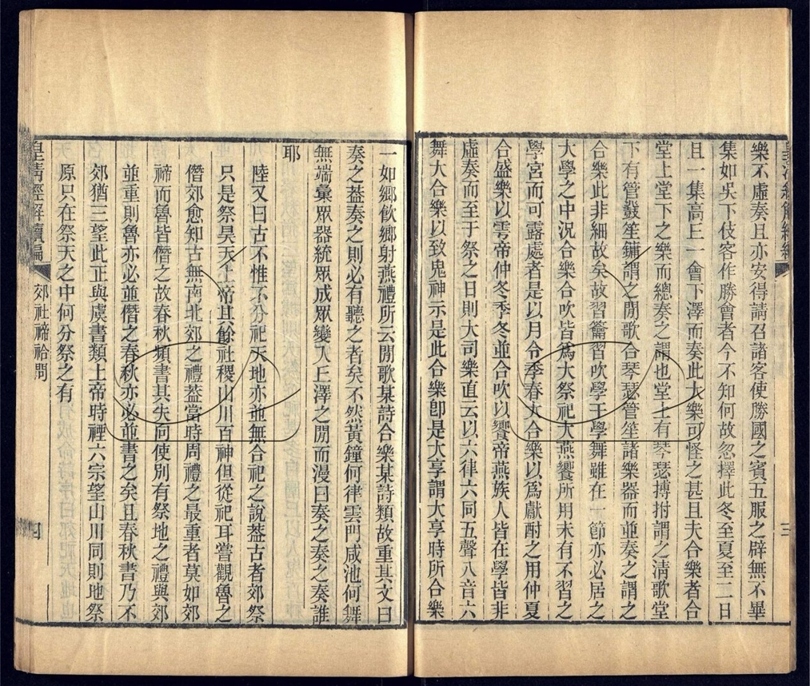 樂不虛奏且亦安得請召諸客使勝國之賓五服之辟無不畢
集如吳下伎客作勝會者今不知何故忽擇此冬至夏至二日
且一集高丘一會下澤而奏此大樂可怪之甚且夫合樂者合
堂上堂下之樂而總奏之謂也堂上有琴瑟搏拊謂之清歌堂
下有管鼗笙鏞謂之閒歌合琴瑟管笙諸樂器而並奏之謂之
合樂此非細故矣故習籥習吹學干學舞雖在一節亦必居之
大學之中況合樂合吹皆爲大祭祀大燕饗所用未有不習之
學宮而可露處者是以月令季春大合樂以爲獻酎之用仲夏
合盛樂以雩帝仲冬季冬並合吹以饗帝燕族人皆在學皆非
虛奏而至于祭之日則大司樂直云以六律六同五聲八音六
舞大合樂以致鬼神示是此合樂卽是大享謂大享時所合樂
三
一如鄉飲鄉射燕禮所云閒歌某詩合樂某詩類故重其文曰
奏之葢奏之則必有聽之者矣不然黃鐘何律雲門咸池何舞
無端彙眾器統眾成眾變入丘澤之閒而漫曰奏之奏之奏誰
耶
陸又曰古不惟不分祀天地亦並無合祀之說葢古者郊祭
只是祭昊天上帝其餘社稷山川百神但從祀耳嘗觀魯之
僭郊愈知古無南北郊之禮葢當時周禮之最重者莫如郊
禘而魯皆僭之故春秋類書其失向使別有祭地之禮與郊
並重則魯亦必並僭之春秋亦必並書之矣且春秋書乃不
郊猶三望此正與虞書類上帝時禋六宗望山川同則地祭
原只在祭天之中何分祭之有
皇清經解續編
郊社禘祫問
四